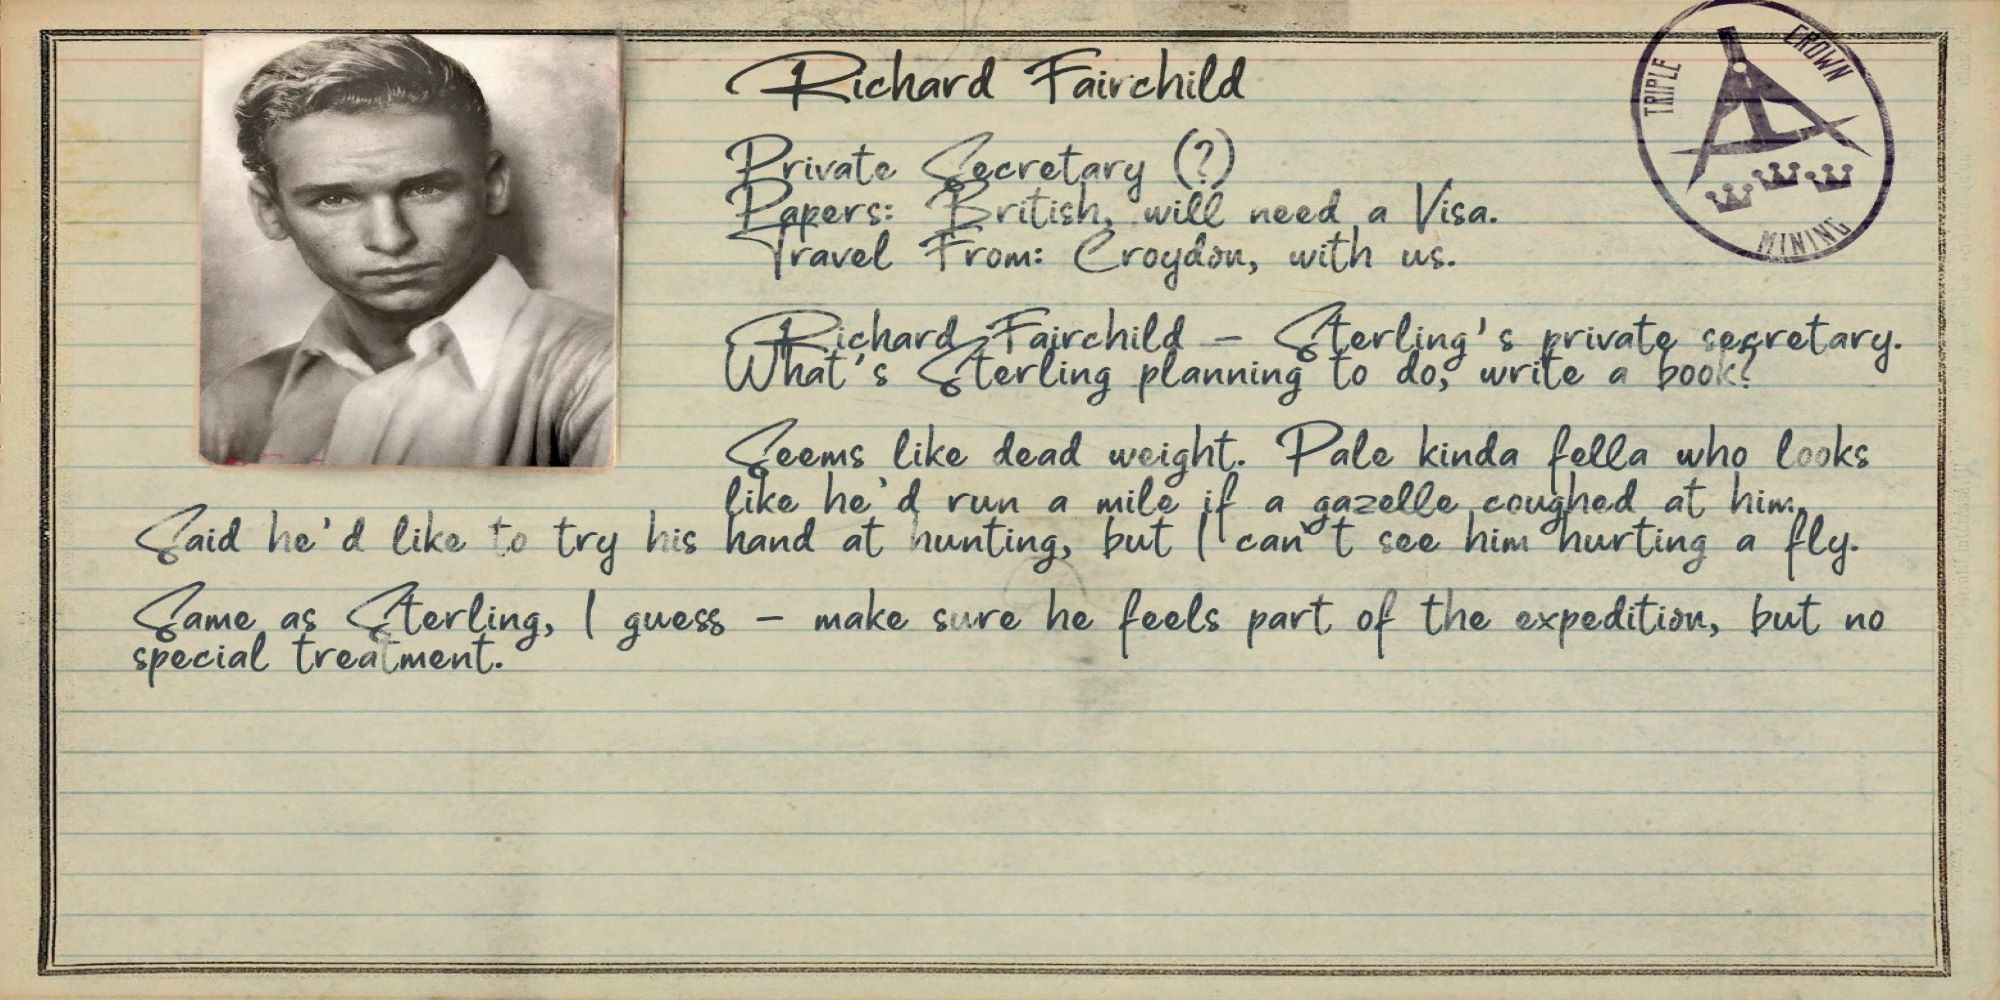 Richard Fairchild
TRIPLE CROWN MINING
Private Secretary (?)
Papers: British, will need a Visa.
Travel From: Croydon, with us.
Richard Fairchild – Sterling's private secretary.
What's Sterling planning to do, write a book?
Seems like dead weight. Pale kinda fella who looks
like he'd run a mile if a gazelle coughed at him.
Said he'd like to try his hand at hunting, but I can't see him hurting a fly.
Same as Sterling, I guess – make sure he feels part of the expedition, but no
special treatment.